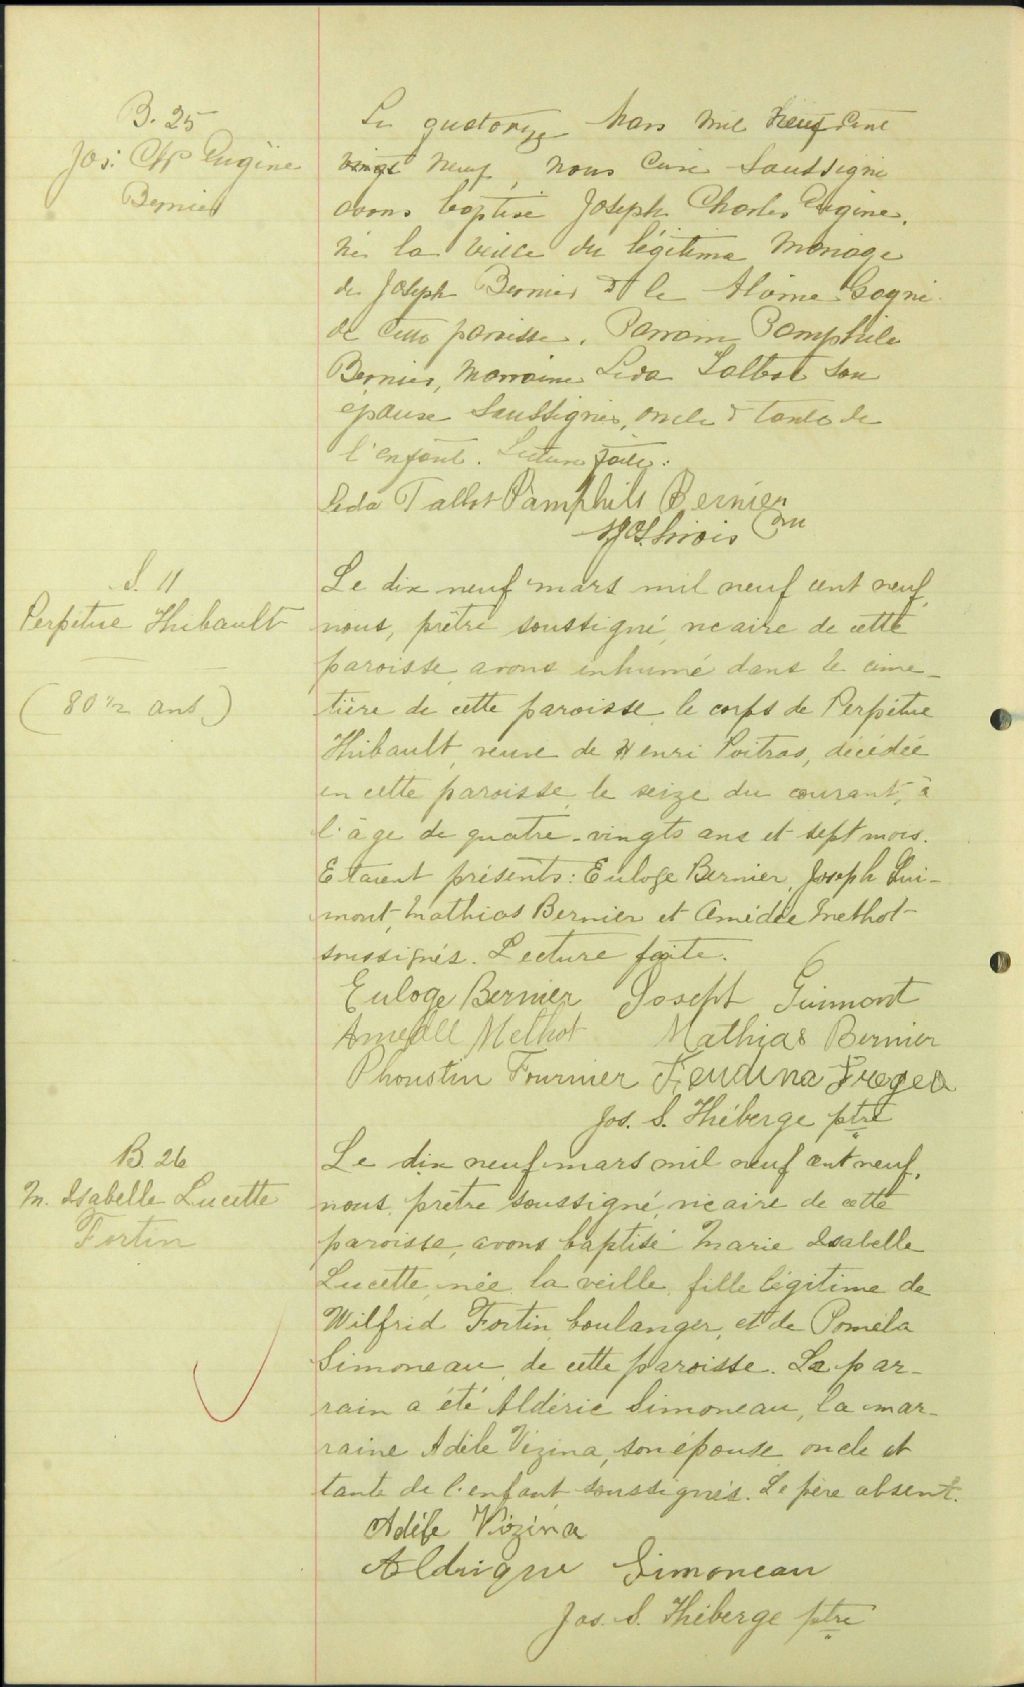 B. 25
Jos: Chs Eugène
Bernier
Le quatorze Mars mil neuf cent
vingt neuf, nous Curé soussigné
avons baptisé Joseph Charles Eugène,
né la veille du légitime mariage
de Joseph Bernier & de Gagné
de cette paroisse. Parrain Pamphile
Bernier, Marraine Leda Talbot son
épouse soussignés, oncle & tante de
l'enfant. Lecture faite.
Leda Talbot Pamphile Bernier
Sirois
S. 11
Perpétue Thibault
(80 7/12 ans)
Le dix neuf mars mil neuf cent neuf,
nous, prêtre soussigné, vicaire de cette
paroisse, avons inhumé dans le cime-
tière de cette paroisse le corps de Perpétue
Thibault, veuve de Henri Poitras, décédée
en cette paroisse, le seize du courant, à
l'âge de quatre-vingts ans et sept mois.
Etaient présents: Euloge Bernier, Joseph Gui-
mont, Mathias Bernier et Amédée Methot
soussignés. Lecture faite.
Euloge Bernier Joseph Guimont
Amedée Methot Mathias Bernier
Phoustin Fournier
Jos. S. Théberge ptre
B. 26
M. Isabelle Lucette
Fortin
Le dix neuf mars mil neuf cent neuf,
nous, prêtre soussigné, vicaire de cette
paroisse, avons baptisé Marie Isabelle
Lucette, née la veille, fille légitime de
Wilfrid Fortin, boulanger, et de Poméla
Simoneau, de cette paroisse. Le par-
rain a été Aldéric Simoneau, la mar-
raine Adèle Vézina, son épouse, oncle et
tante de l'enfant soussignés. Le père absent.
Adèle Vézina
Simoneau
Jos. S. Théberge ptre